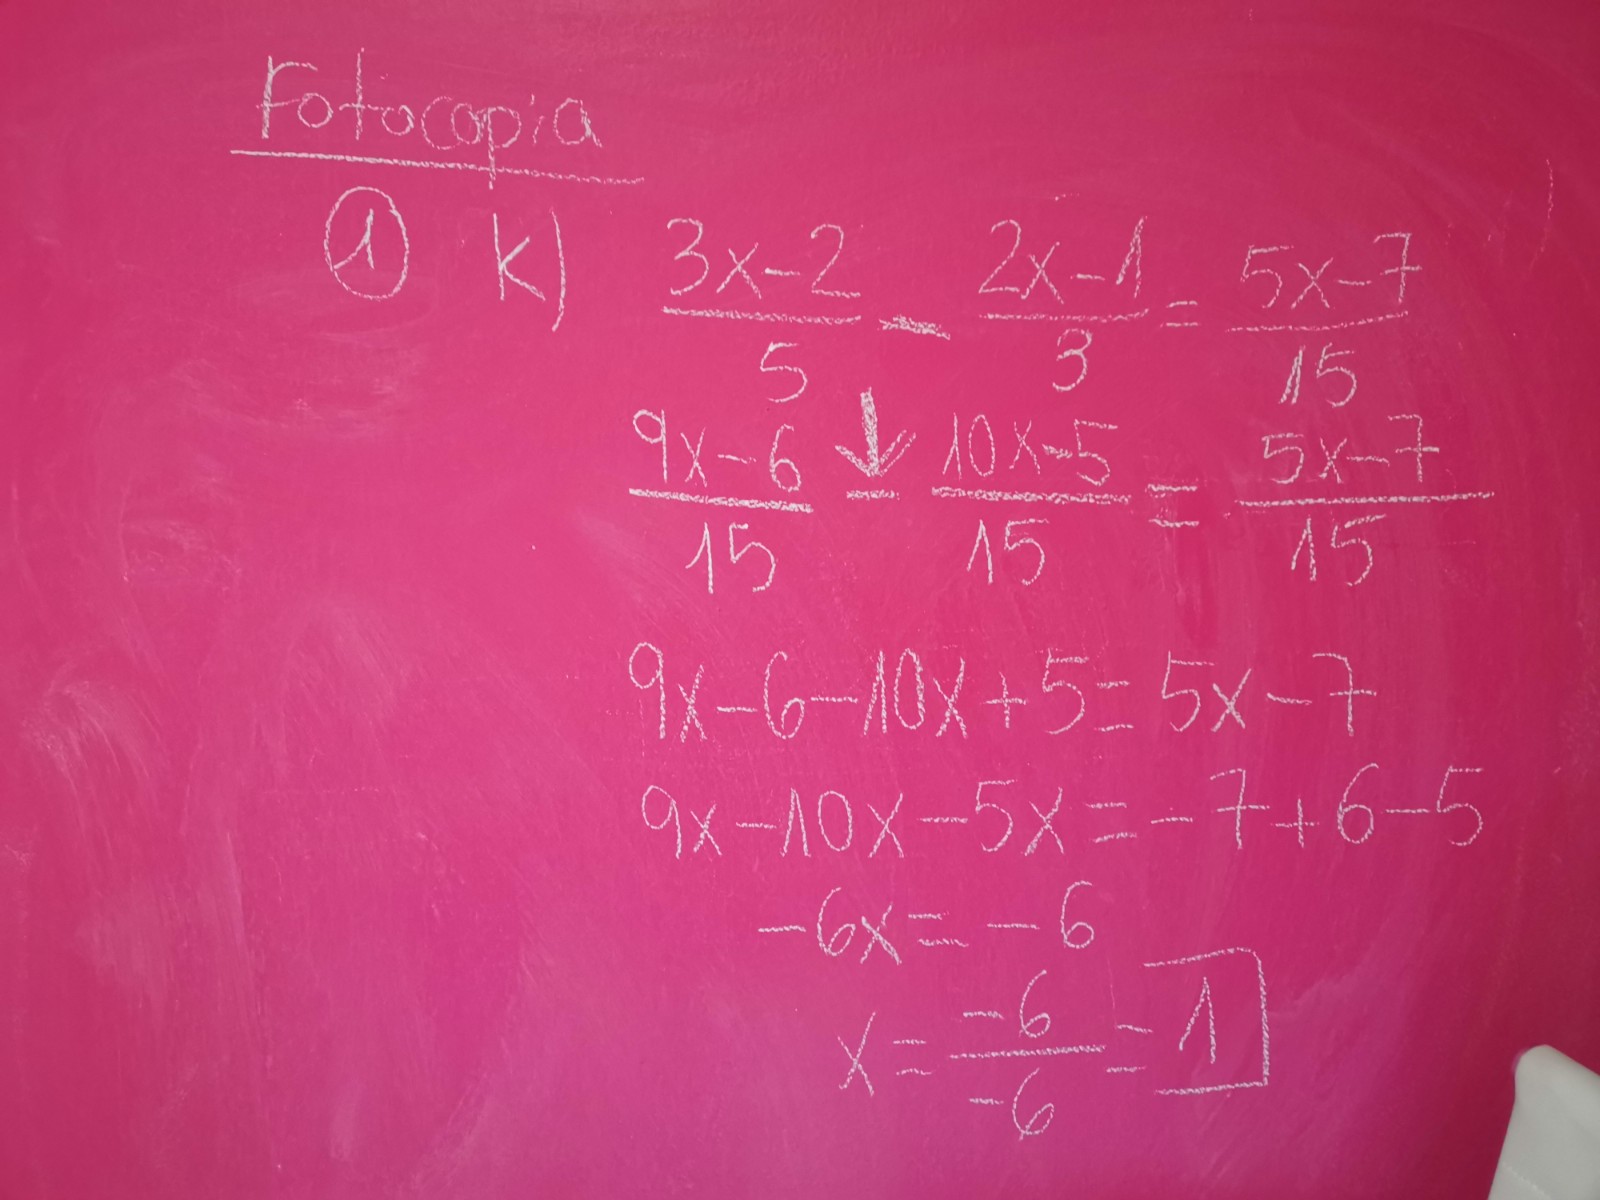 Fotocopia
① k) (3x-2)/5 - (2x-1)/3 = (5x-7)/15
(9x-6)/15 - (10x-5)/15 = (5x-7)/15
9x-6-10x+5=5x-7
9x-10x-5x=-7+6-5
-6x=-6
x=-6/-6=1